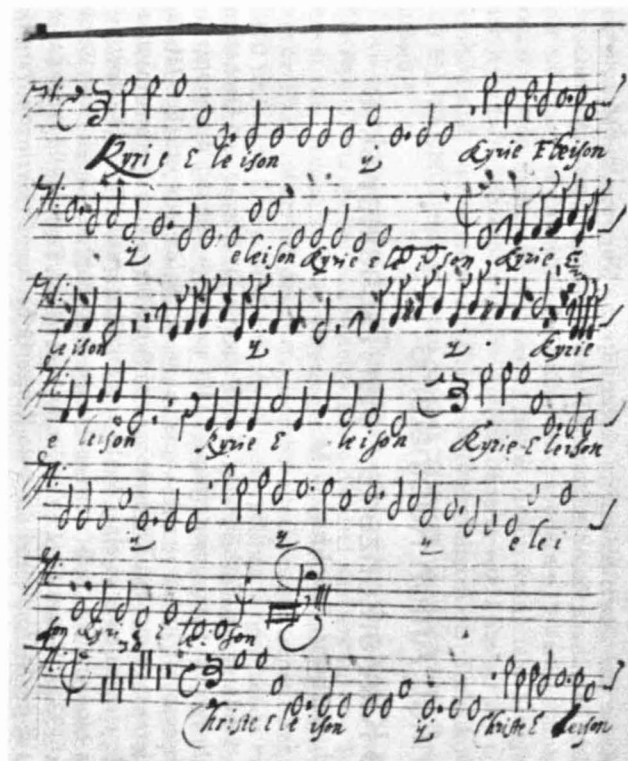 Kyrie E leison ij Kyrie Eleison
ij eleison Kyrie e leison Kyrie E
leison ij ij Kyrie
e leison Kyrie E leison Kyrie E leison
ij ij ij e lei
son Kyrie E leison
Christe E le ison ij Christe E leison